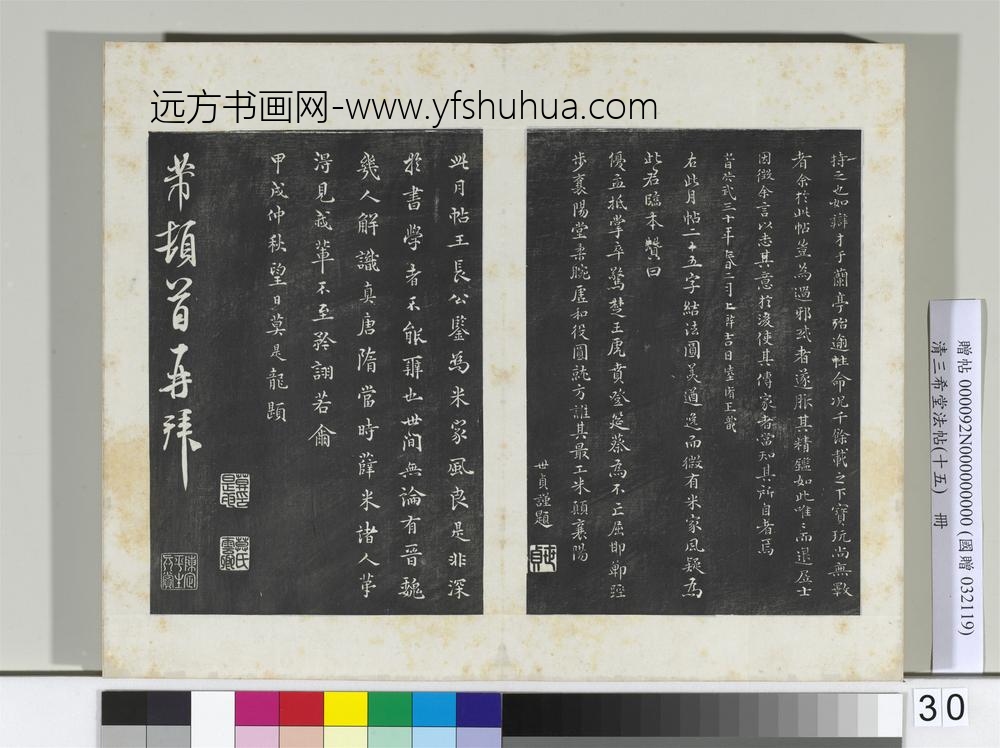 远方书画网-www.yfshuhua.com
持之也如辯才于蘭亭殆逾性命况千餘載之下寶玩尚無斁
者余於此帖豈為過邪
因徵余言以志其意於後使其傳家者當知其所自者焉
右此月帖二十五字結法圓美遒逸而微有米家風疑為
此君臨本贊曰
優孟抵掌卒驚楚王虎賁登筵蔡為不亡屈即鄣經
步襄陽堂柔腕虛和役圓就方誰其最工米顛襄陽
世貞謹題
此月帖王長公鑒為米家風良是非深
於書學者不能辯也世間無論有晉魏
幾人解識真唐隋當時薛米諸人苐
淂見或輩不至矜詡若爾
甲戌仲秋望日莫是龍題
芾頓首再拜
贈帖 000092N000000000 (國贈 032119)
清三希堂法帖(十五) 冊
30